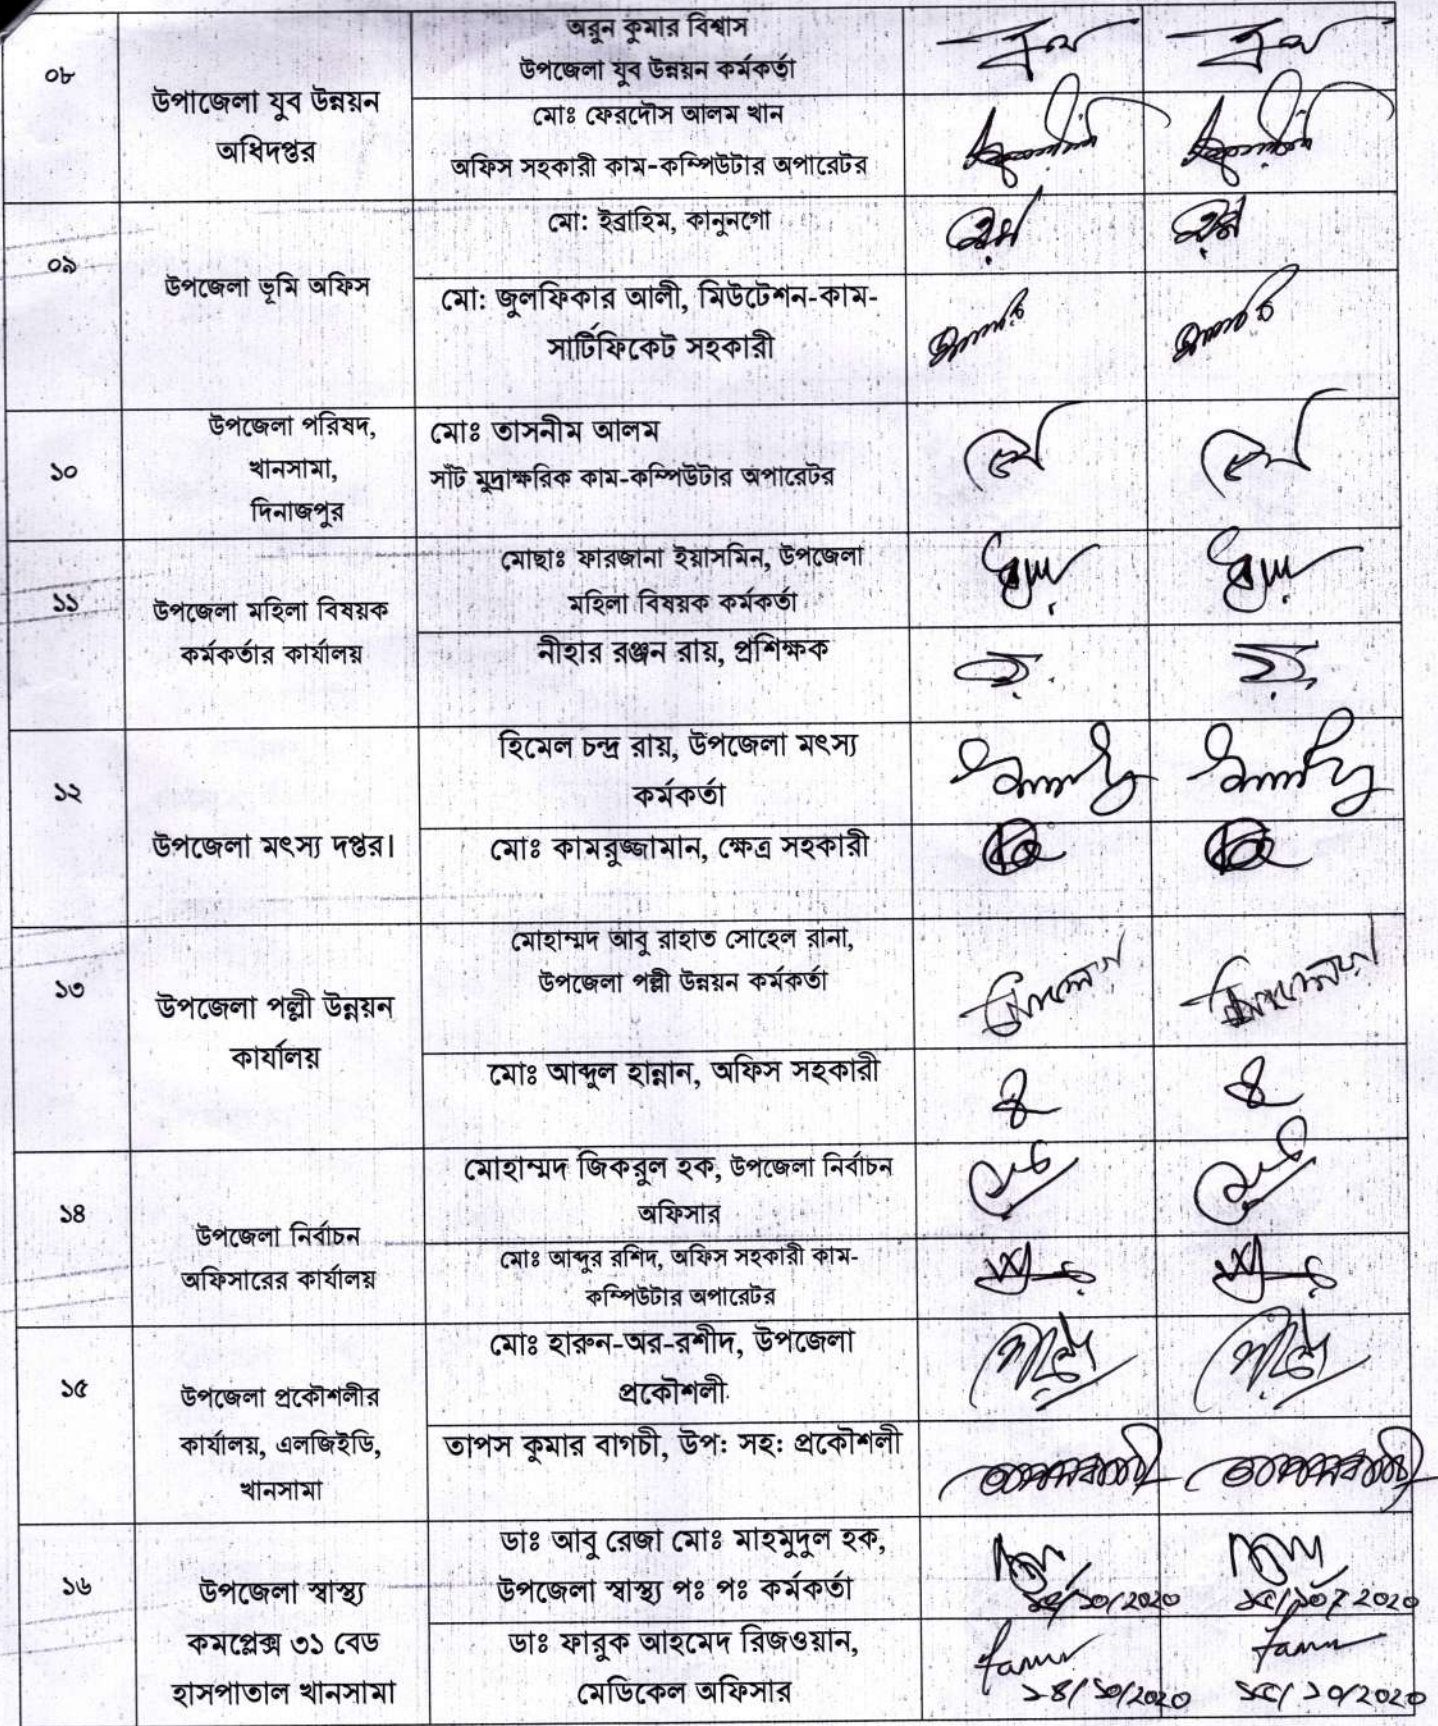 ০৮
উপাজেলা যুব উন্নয়ন
অধিদপ্তর
অরুন কুমার বিশ্বাস
উপজেলা যুব উন্নয়ন কর্মকর্তা
মোঃ ফেরদৌস আলম খান
অফিস সহকারী কাম-কম্পিউটার অপারেটর
০৯
উপজেলা ভূমি অফিস
মো: ইব্রাহিম, কানুনগো
মো: জুলফিকার আলী, মিউটেশন-কাম-
সার্টিফিকেট সহকারী
১০
উপজেলা পরিষদ,
খানসামা,
দিনাজপুর
মোঃ তাসনীম আলম
সাঁট মুদ্রাক্ষরিক কাম-কম্পিউটার অপারেটর
১১
উপজেলা মহিলা বিষয়ক
কর্মকর্তার কার্যালয়
মোছাঃ ফারজানা ইয়াসমিন, উপজেলা
মহিলা বিষয়ক কর্মকর্তা
নীহার রঞ্জন রায়, প্রশিক্ষক
১২
উপজেলা মৎস্য দপ্তর।
হিমেল চন্দ্র রায়, উপজেলা মৎস্য
কর্মকর্তা
মোঃ কামরুজ্জামান, ক্ষেত্র সহকারী
১৩
উপজেলা পল্লী উন্নয়ন
কার্যালয়
মোহাম্মদ আবু রাহাত সোহেল রানা,
উপজেলা পল্লী উন্নয়ন কর্মকর্তা
মোঃ আব্দুল হান্নান, অফিস সহকারী
১৪
উপজেলা নির্বাচন
অফিসারের কার্যালয়
মোহাম্মদ জিকরুল হক, উপজেলা নির্বাচন
অফিসার
মোঃ আব্দুর রশিদ, অফিস সহকারী কাম-
কম্পিউটার অপারেটর
১৫
উপজেলা প্রকৌশলীর
কার্যালয়, এলজিইডি,
খানসামা
মোঃ হারুন-অর-রশীদ, উপজেলা
প্রকৌশলী
তাপস কুমার বাগচী, উপ: সহ: প্রকৌশলী
১৬
উপজেলা স্বাস্থ্য
কমপ্লেক্স ৩১ বেড
হাসপাতাল খানসামা
ডাঃ আবু রেজা মোঃ মাহমুদুল হক,
উপজেলা স্বাস্থ্য পঃ পঃ কর্মকর্তা
১৪/১০/২০২০ ১৫/১০/২০২০
ডাঃ ফারুক আহমেদ রিজওয়ান,
মেডিকেল অফিসার
১৪/১০/২০২০ ১৫/১০/২০২০